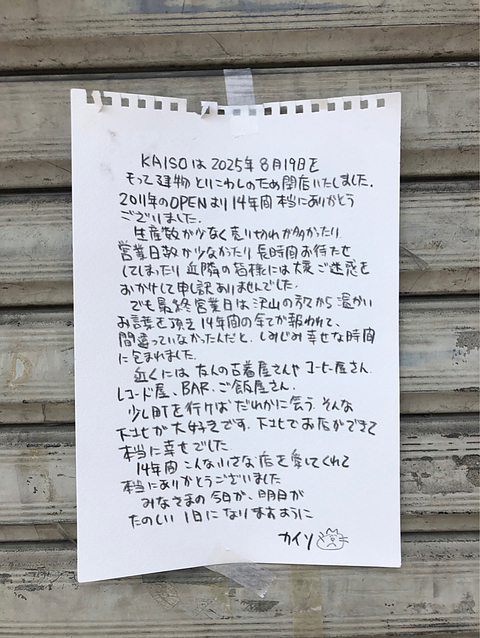 KAISOは2025年8月19日を
もって建物とりこわしのため閉店いたしました。
2011年のOPENより14年間本当にありがとう
ございました。
生産数が少なく売り切れが多かったり
営業日数が少なかったり長時間お待たせ
してしまったり近隣の皆様には大変ご迷惑を
おかけして申し訳ありませんでした。
でも最終営業日は沢山の方々から温かい
お言葉を頂き14年間の全てが報われて、
間違っていなかったんだと、しみじみ幸せな時間
に包まれました。
近くには友人の古着屋さんやコーヒー屋さん
レコード屋、BAR、ご飯屋さん。
少し町を行けばだれかに会う、そんな
下北が大好きです。下北でお店ができて
本当に幸せでした
14年間こんな小さな店を愛してくれて
本当にありがとうございました
みなさまの今日が、明日が
たのしい1日になりますように
カイソ